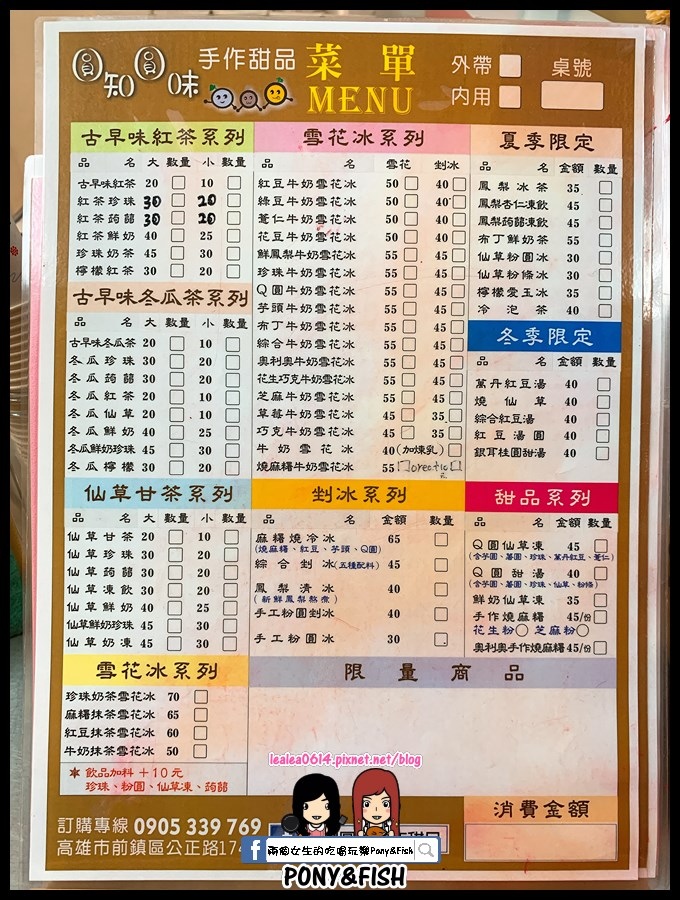 圓知圓味 手作甜品 菜單 MENU 外帶 內用 桌號
古早味紅茶系列
品 名 大 數量 小 數量
古早味紅茶 20 10
紅茶珍珠 30 20
紅茶蒟蒻 30 20
紅茶鮮奶 40 25
珍珠奶茶 45 30
檸檬紅茶 30 20
古早味冬瓜茶系列
品 名 大 數量 小 數量
古早味冬瓜茶 20 10
冬瓜珍珠 30 20
冬瓜蒟蒻 30 20
冬瓜紅茶 20 10
冬瓜仙草 20 10
冬瓜鮮奶 40 25
冬瓜鮮奶珍珠 45 30
冬瓜檸檬 30 20
仙草甘茶系列
品 名 大 數量 小 數量
仙草甘茶 20 10
仙草珍珠 30 20
仙草蒟蒻 30 20
仙草凍飲 30 20
仙草鮮奶 40 25
仙草鮮奶珍珠 45 30
仙草奶凍 45 30
雪花冰系列
珍珠奶茶雪花冰 70
麻糬抹茶雪花冰 65
紅豆抹茶雪花冰 60
牛奶抹茶雪花冰 50
✶ 飲品加料 + 10 元
珍珠、粉圓、仙草凍、蒟蒻
雪花冰系列
品 名 雪花 剉冰
紅豆牛奶雪花冰 50 40
綠豆牛奶雪花冰 50 40
薏仁牛奶雪花冰 50 40
花豆牛奶雪花冰 50 40
鮮鳳梨牛奶雪花冰 55 45
珍珠牛奶雪花冰 55 45
Q圓牛奶雪花冰 55 45
芋頭牛奶雪花冰 55 45
布丁牛奶雪花冰 55 45
綜合牛奶雪花冰 55 45
奧利奧牛奶雪花冰 55 45
花生巧克牛奶雪花冰 55 45
芝麻牛奶雪花冰 55 45
草莓牛奶雪花冰 45 35
巧克牛奶雪花冰 45 35
牛奶雪花冰 40(加煉乳)
燒麻糬牛奶雪花冰 55
剉冰系列
品 名 金額 數量
麻糬燒冷冰 65
(燒麻糬、紅豆、芋頭、Q圓)
綜合剉冰(五種配料) 45
鳳梨清冰 40
(新鮮鳳梨熬煮)
手工粉圓剉冰 40
手工粉圓冰 30
限量商品
夏季限定
品 名 金額 數量
鳳梨冰茶 35
鳳梨杏仁凍飲 45
鳳梨蒟蒻凍飲 45
布丁鮮奶茶 55
仙草粉圓冰 30
仙草粉條冰 30
檸檬愛玉冰 35
冷泡茶 40
冬季限定
品 名 金額 數量
萬丹紅豆湯 40
燒仙草 40
綜合紅豆湯 40
紅豆湯圓 40
銀耳桂圓甜湯 40
甜品系列
品 名 金額 數量
Q圓仙草凍 45
(含芋圓、薯圓、珍珠、萬丹紅豆、薏仁)
Q圓甜湯 40
(含芋圓、薯圓、珍珠、仙草、粉條)
鮮奶仙草凍 35
手作燒麻糬 45/份
花生粉 芝麻粉
奧利奧手作燒麻糬 45/份
消費金額
訂購專線 0905 339 769
高雄市前鎮區公正路174
lealea0614.pixnet.net/blog
兩個女生的吃喝玩樂Pony&Fish
PONY&FISH